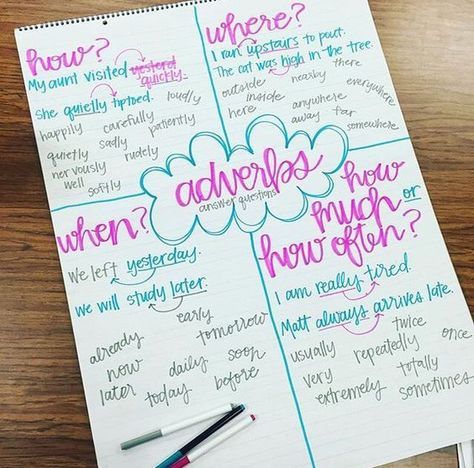 how?
My aunt visited yesterd quickly.
She quietly tiptoed. loudly
happily carefully patiently
quietly sadly
nervously rudely
well softly
where?
I ran upstairs to pout.
The cat was high in the tree.
outside nearby there
inside everywhere
here anywhere
away far
somewhere
adverbs
answer questions
when?
We left yesterday.
We will study later.
early
already tomorrow
now daily soon
later today before
how
much or
how often?
I am really tired.
Matt always arrives late.
usually twice once
repeatedly
very totally
extremely sometimes